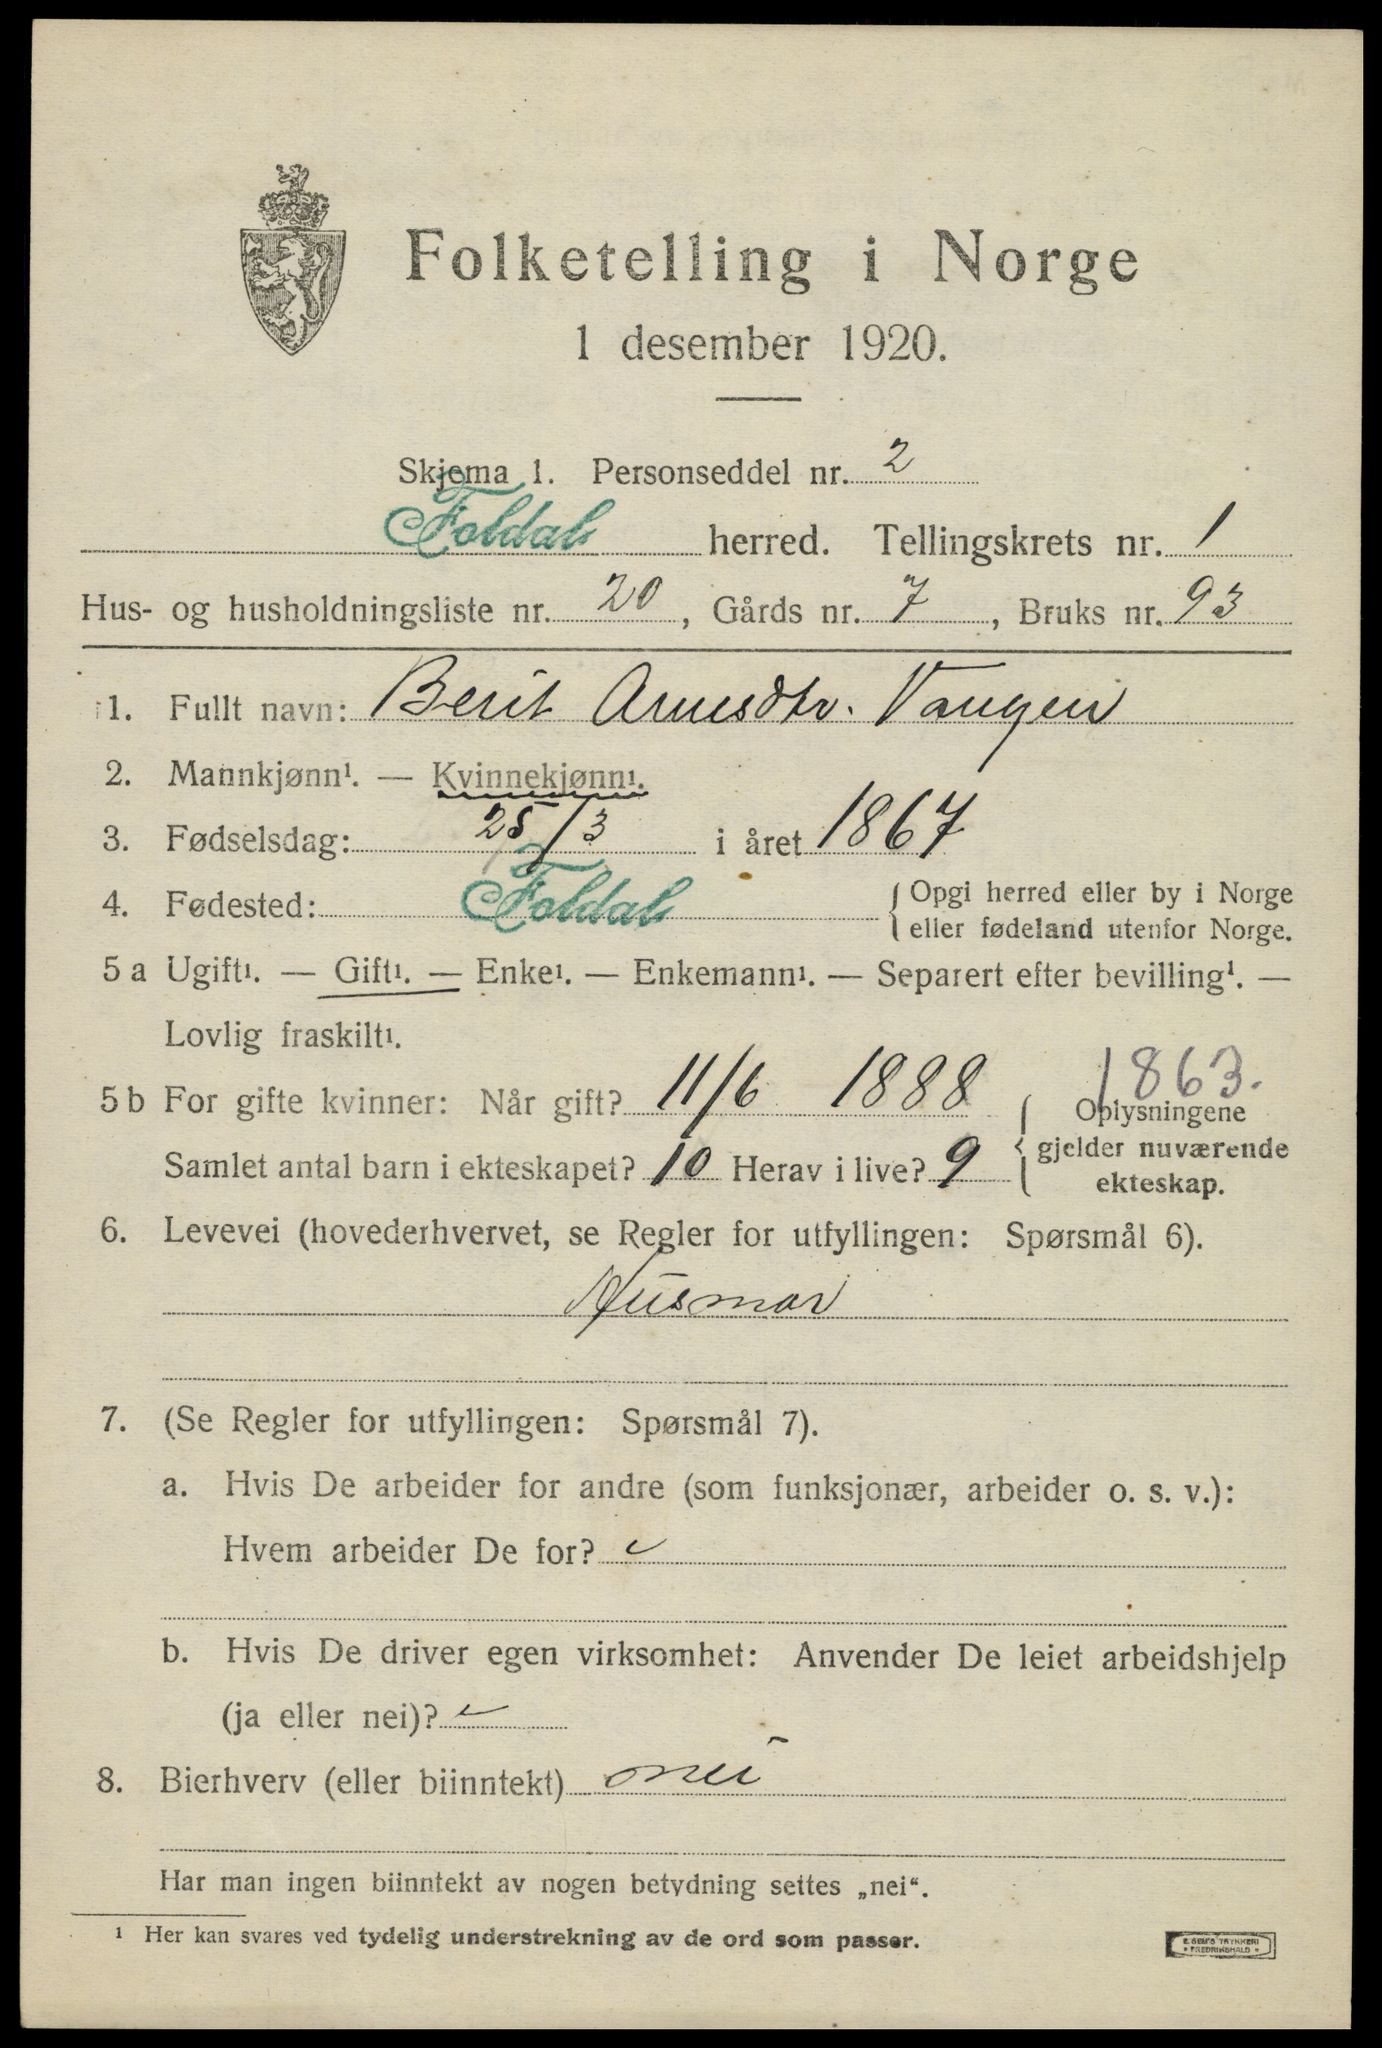 Folketelling i Norge
1 desember 1920.
Skjema 1. Personseddel nr. 2
Foldal herred. Tellingskrets nr. 1
Hus- og husholdningsliste nr. 20, Gårds nr. 7, Bruks nr. 93
1. Fullt navn: Berit Arnesdtr. Vangen
2. Mannkjønn¹. — Kvinnekjønn¹.
3. Fødselsdag: 25/3 i året 1867
4. Fødested: Foldal { Opgi herred eller by i Norge
eller fødeland utenfor Norge.
5 a Ugift¹. — Gift¹. — Enke¹. — Enkemann¹. — Separert efter bevilling¹. —
Lovlig fraskilt¹.
1863.
5 b For gifte kvinner: Når gift? 11/6 1888 { Oplysningene
gjelder nuværende
Samlet antal barn i ekteskapet? 10 Herav i live? 9
ekteskap.
6. Levevei (hovederhvervet, se Regler for utfyllingen: Spørsmål 6).
Husmor
7. (Se Regler for utfyllingen: Spørsmål 7).
a. Hvis De arbeider for andre (som funksjonær, arbeider o. s. v.):
Hvem arbeider De for?
b. Hvis De driver egen virksomhet: Anvender De leiet arbeidshjelp
(ja eller nei)?
8. Bierhverv (eller biinntekt) nei
Har man ingen biinntekt av nogen betydning settes „nei“.
¹ Her kan svares ved tydelig understrekning av de ord som passer.
E. SEM'S TRYKKERI
* FREDRIKSHALD *